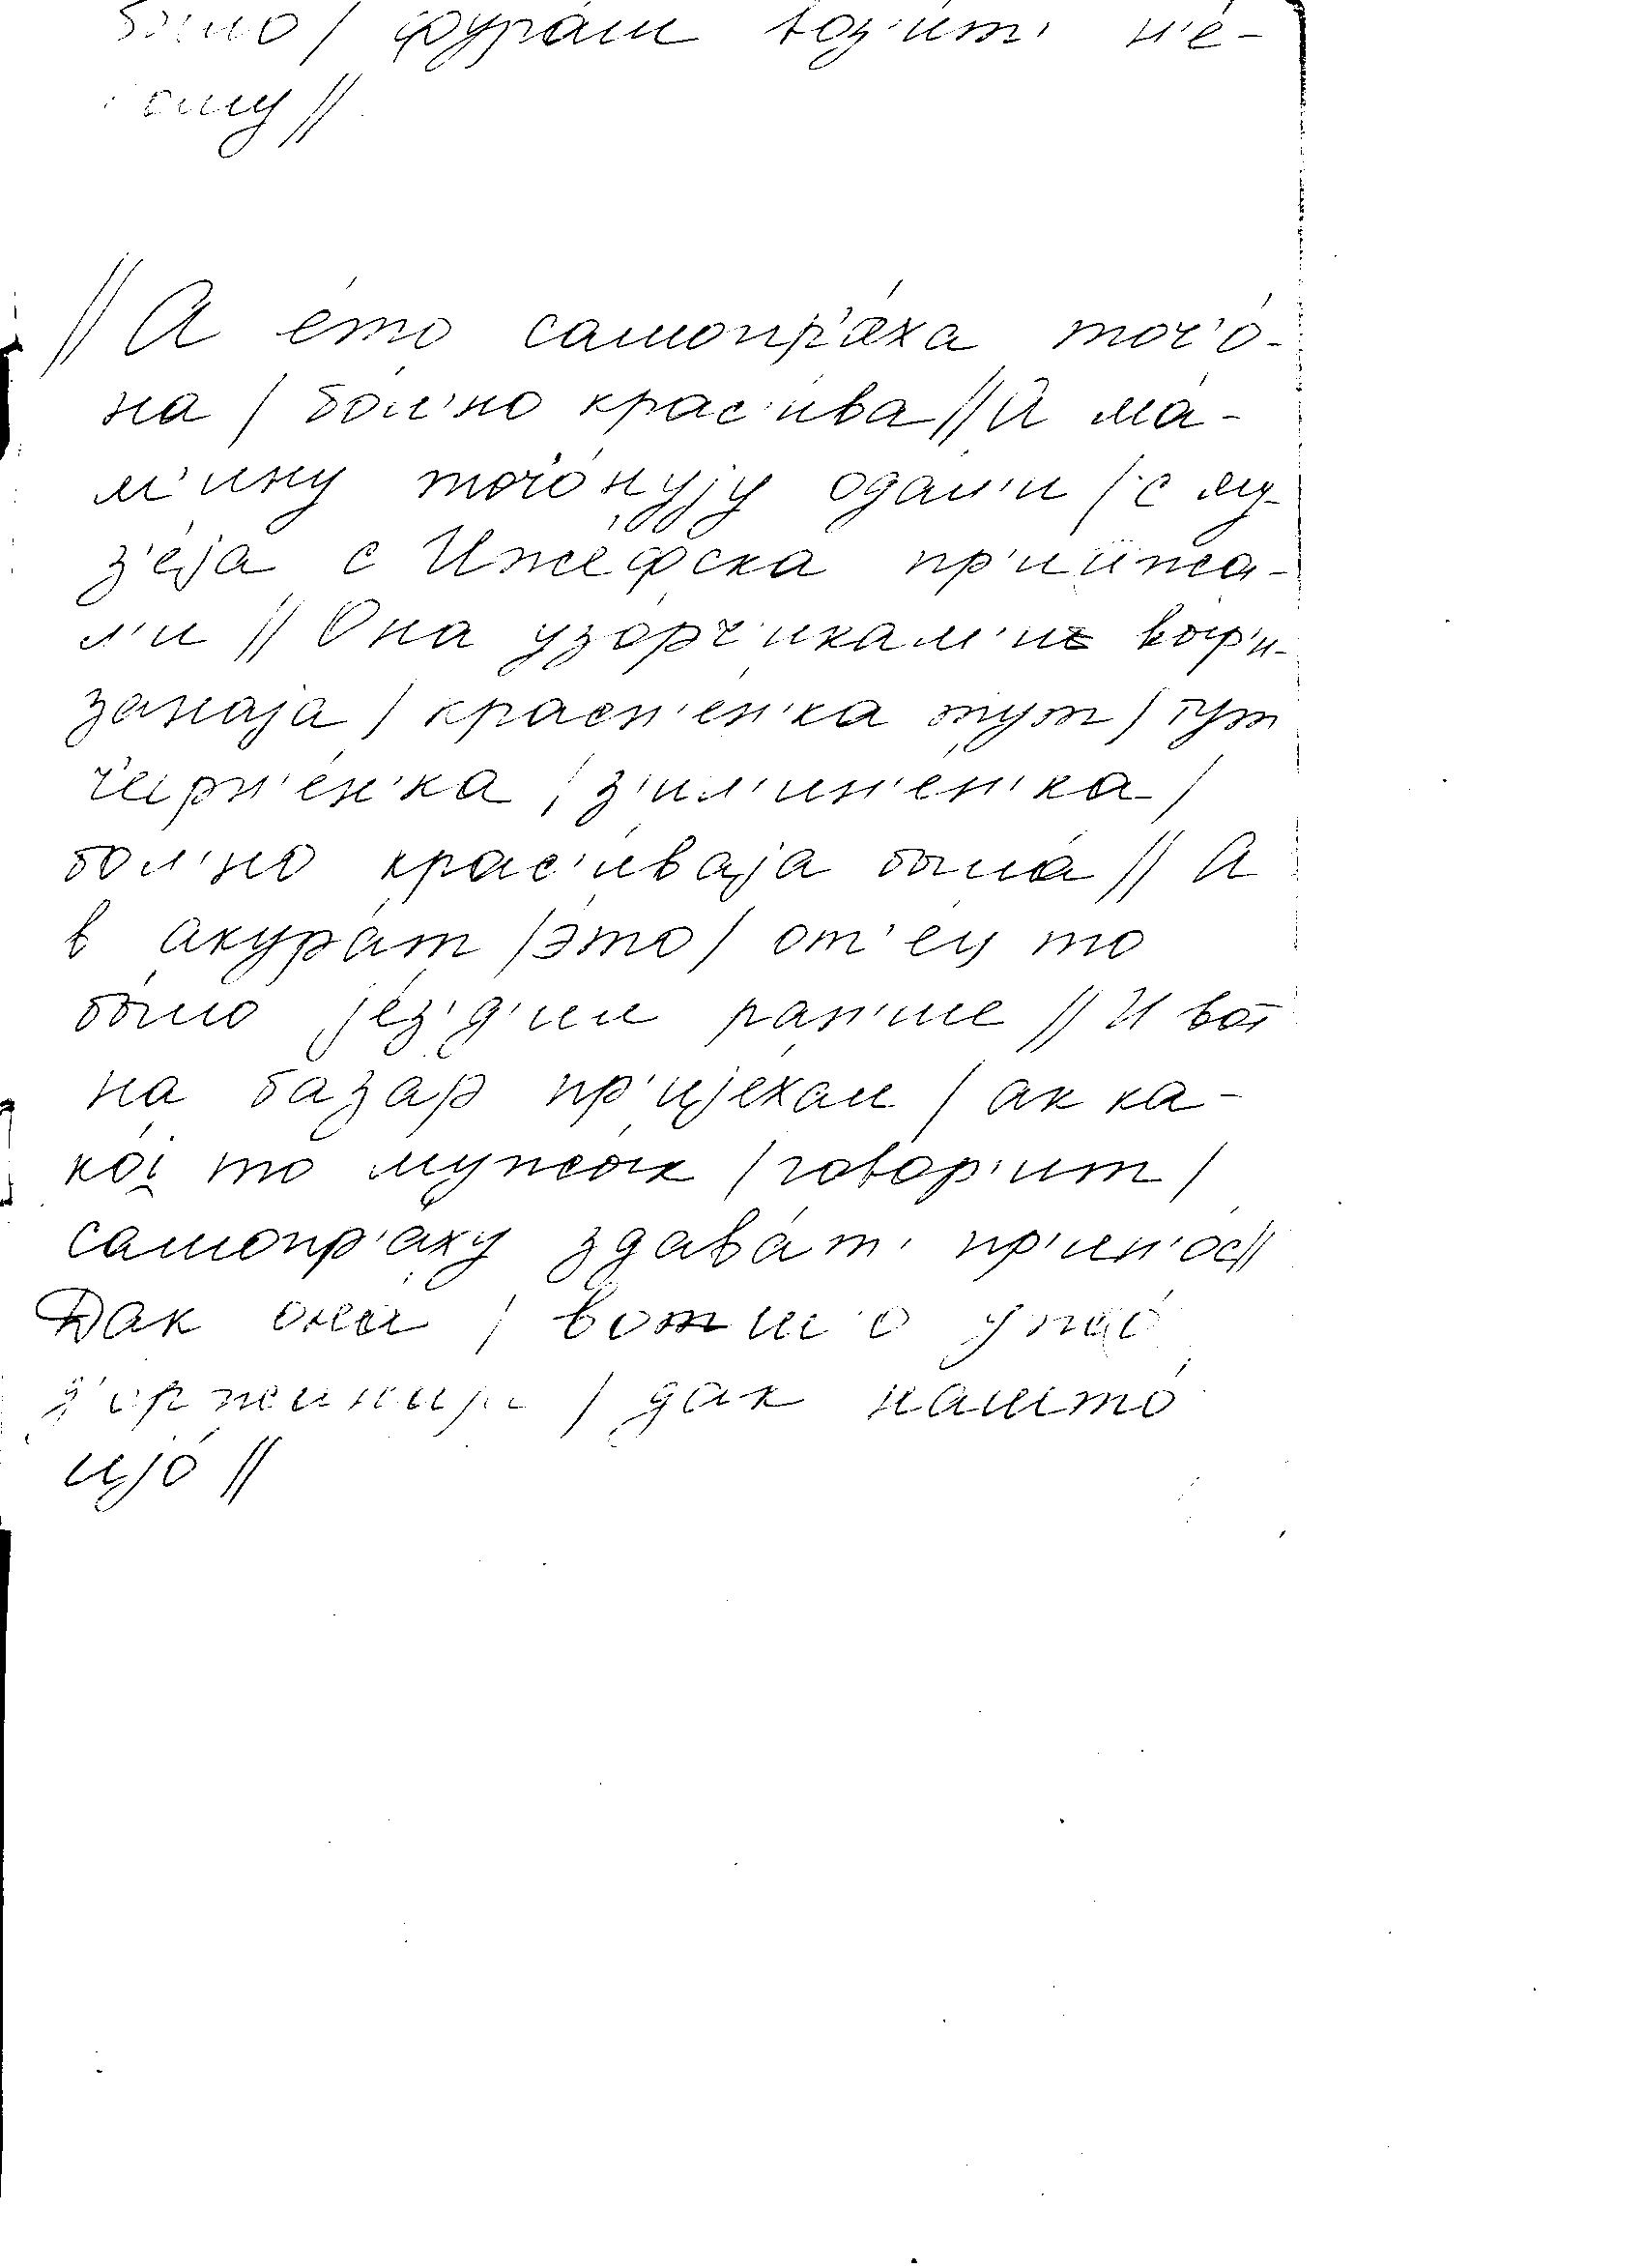 было / фура́ш воз'и́т' н'е́-
кому //
// А е́то самопр'а́ха точ'о́-
на / бо́л'но крас'и́ва // А ма́-
м'ину точ'о́нуjу одал'и / с му-
з'е́jа с Иже́фска пр'ийжа-
л'и // Она узо́рч'икам'и выр'и-
занаjа / красн'е́н'ка тут / тут
ч'ирн'е́н'ка / з'ил'ин'е́н'ка /
бол'но крас'и́ваjа была́ // А
в акура́т / э́то / от'е́ц то
бы́ло jе́з'д'ил ра́н'ше // И вот
на база́р пр'иjе́хал / ак ка-
ко́й то мужы́к / говор'и́т /
самопр'а́ху здава́т' пр'ин'о́с //
Дак она́ / вот ш'о
дак нашто́
иjо́ //